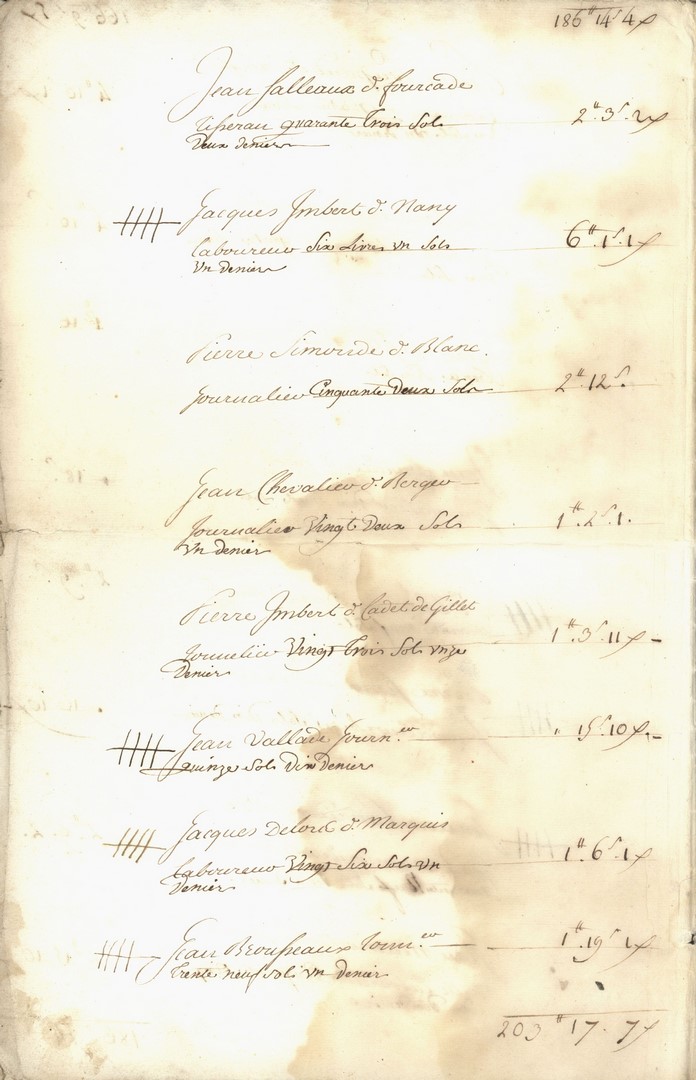 186# 14s 4d
Jean Salleaux d. fourcade
tisseran quarante Trois Sols 2# 3s 2d
Deux deniers
Jacques Imbert d. Nany
laboureur Six Livres un Sols 6# 1s 1d
un denier
Pierre Simonde d. Blanc.
journalier Cinquante Deux Sols 2# 12s.
Jean Chevalier d. Berger
journalier Vingt Deux Sols 1# 2s 1.
un denier
Pierre Imbert d. Cadet de Gillet
journalier Vingt Trois Sols unze 1# 3s 11d
Denier
Jean Vallade Journ.er " 15s 10d
quinze Sols Dix Denier
Jacques Delord d. Marquis
laboureur Vingt Six Sols un 1# 6s 1d
Denier
Jean Brousseaux Journ.er 1# 19s 1d
trente neuf sols un denier
203# 17. 7d